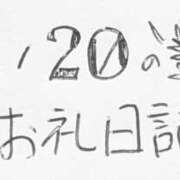 /20の
お礼日記